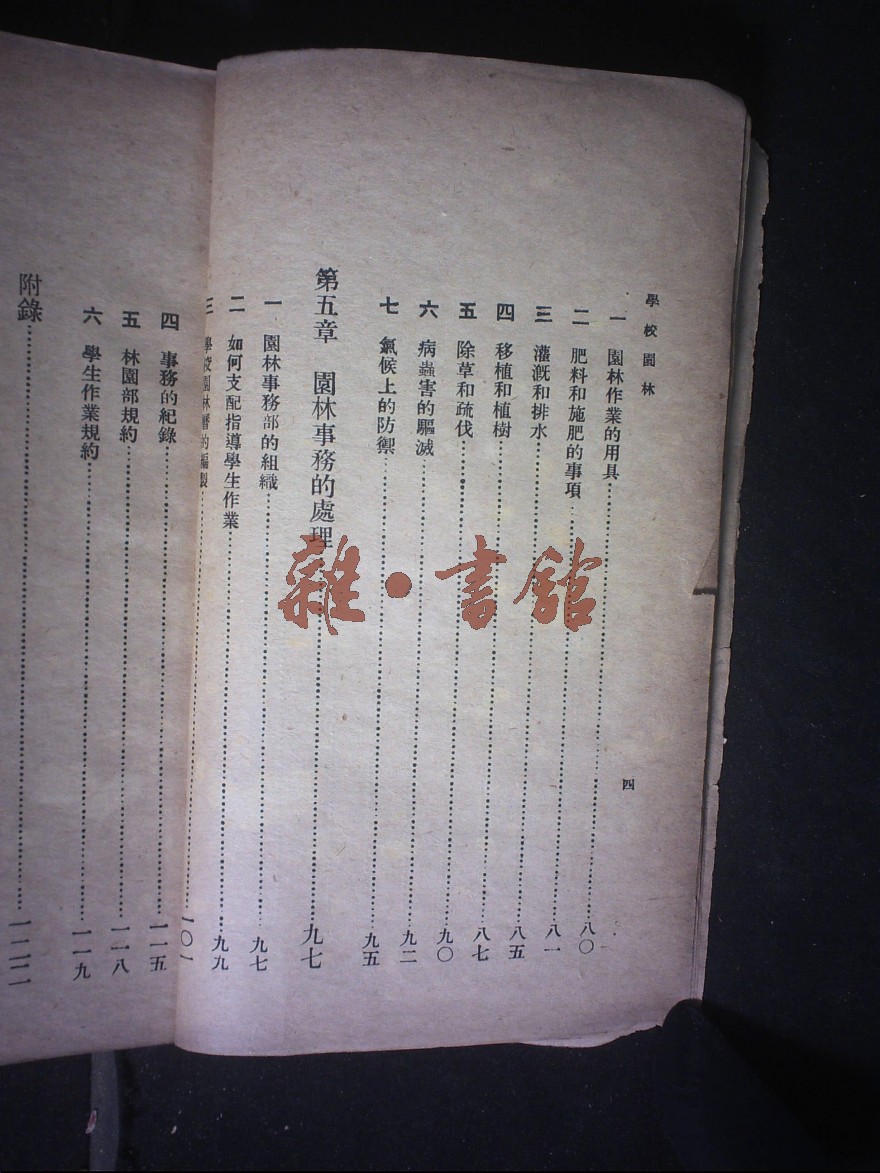 學校園林
四
一 園林作業的用具……八〇
二 肥料和施肥的事項……八一
三 灌溉和排水……八五
四 移植和植樹……八七
五 除草和疏伐……九〇
六 病蟲害的驅滅……九二
七 氣候上的防禦……九五
第五章 園林事務的處理……九七
一 園林事務部的組織……九七
二 如何支配指導學生作業……九九
三 學校園林曆的編製……一〇一
四 事務的紀錄……一一五
五 林園部規約……一一八
六 學生作業規約……一一九
附錄……一二二
雜·書館